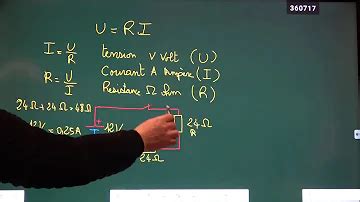 360717
U = R I
I = U/R
tension V Volt (U)
Courant A Ampère (I)
R = U/I
Resistance Ω ohm (R)
24Ω + 24Ω = 48Ω
12V = 0,25A
12V
24Ω
R
24Ω